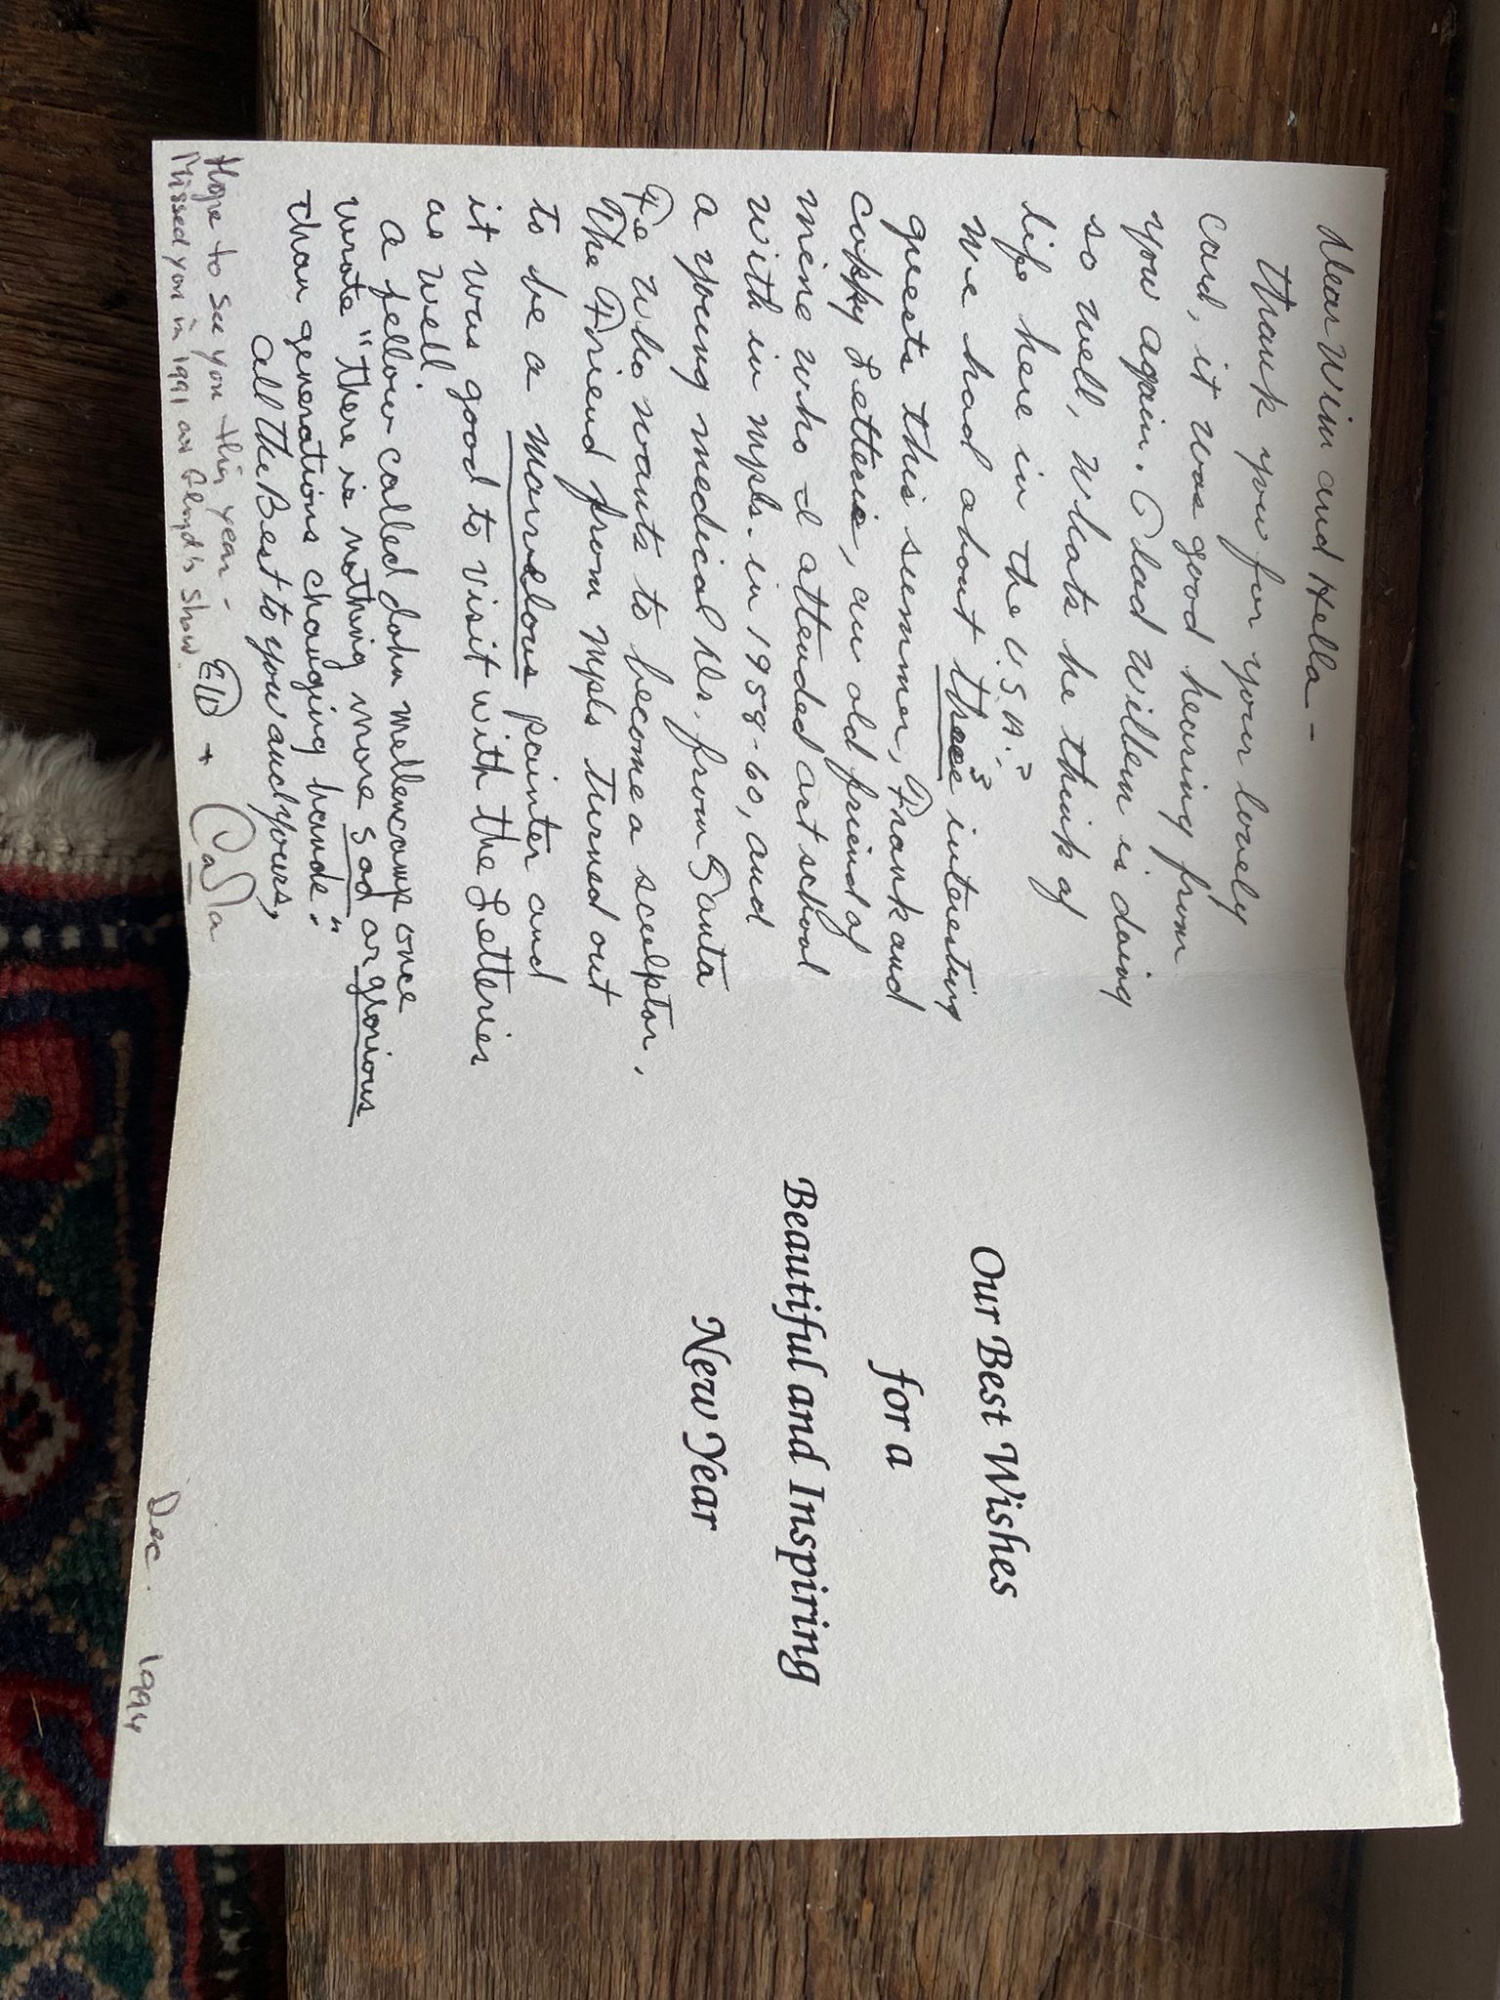 Dear Wim and Hella -
Thank you for your lovely
card, it was good hearing from
you again. Glad Willem is doing
so well, whats he think of
life here in the U.S.A.?
We had about three 3 interesting
guests this summer, Frank and
Coppy Letterie, an old friend of
mine who I attended art school
with in Mpls. in 1958-60, and
a young medical Dr. from Santa
Fe who wants to become a sculptor,
The Friend from Mpls turned out
to be a marvelous painter and
it was good to visit with the Letteries
as well.
A fellow called John Mellencamp once
wrote "there is nothing more sad or glorious
than generations changing hands."
All the Best to you and yours,
Hope to see you this year - Ell + Carla
Missed you in 1991 at show.
Our Best Wishes
for a
Beautiful and Inspiring
New Year
Dec. 1994